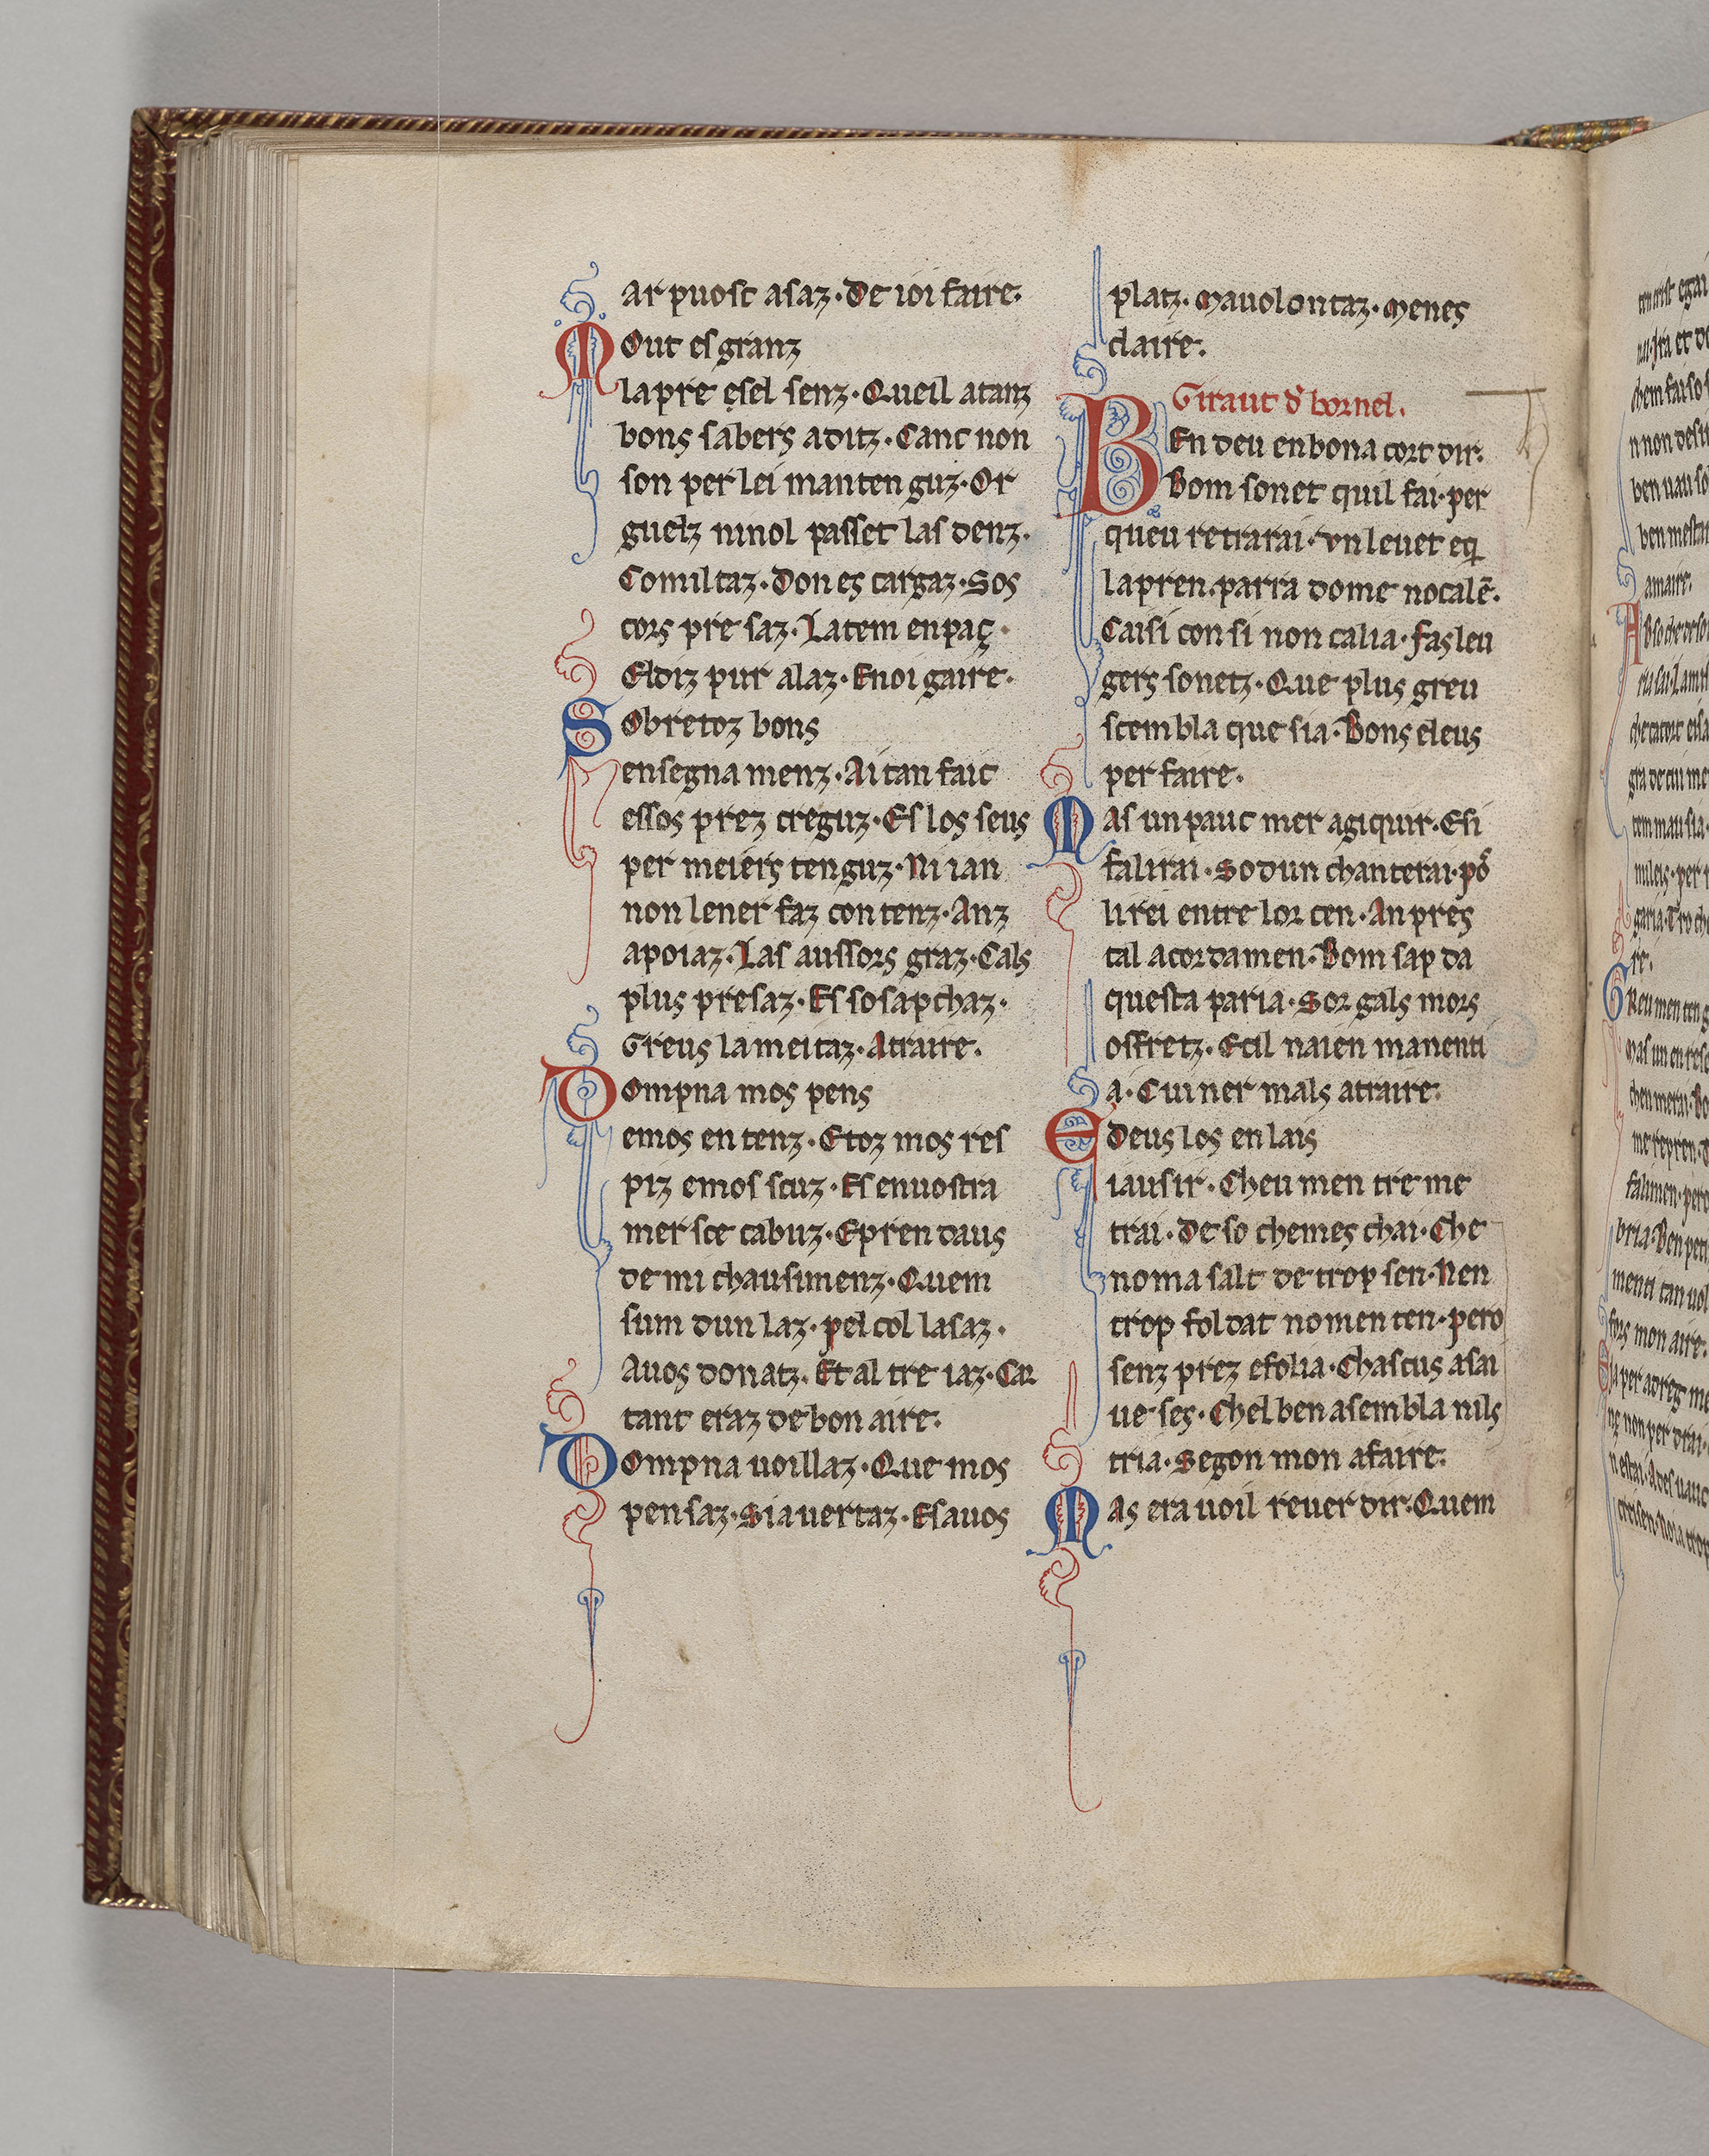 ar puosc asaz · De ioi faire·
Mout es granz
lapre esel senz · Queil atanz
bons sabers aditz · Canc non
son per lei manten guz · Or
guelz ninol passet las denz ·
Comiltaz · Don es cargaz · Sos
cors pre saz · Latem enpaç ·
Eldiz pur alaz · Enoi gaire ·
Sobretoz bons
ensegna menz · Ai tan faic
essos prez creguz · Es los seus
per meiers tenguz · Ni ian
non lener faz con tenz · Anz
apoiaz · Las aussors graz · Cals
plus presaz · Es so sapchaz ·
Greus la meitaz · Atraire ·
Dompna mos pens
emos en tenz · Etoz mos res
piz emos scuz · Es enuostra
mer sce cabuz · Epren daus
de mi chausimenz · Quem
sum dun laz · pel col lasaz ·
Auos donatz · Et al tre iaz · Car
tant eraz de bon aire ·
Dompna uoillaz · Que mos
pen saz · Sia uertaz · Esauos
platz · Mauolontaz · Menes
claire ·
Giraut đ bornel ·
BEn deu enbona cort dir ·
Bom sonet quil fai · per
queu retrarai · vn leuet eq̃
lapren · parra dome nocalē ·
Caisi con si non calia · fas leu
gers sonetz · Que plus greu
scembla que sia · Bons eleus
per faire ·
Mas un pauc mer agiquir · Esi
falirai · So dun chanterai · põ
lirei entre lor cen · An pres
tal acordamen · Bom sap da
questa paria · Sor gals mors
offretz · Ecil naien manenti
a · Cui ner mals atraire ·
Edeus los en lais
iausir · Cheu men tre me
trai · De so chemes chai · Che
noma salt de trop sen · Nen
trop foldat nomen ten · pero
senz prez efolia · Chascus asai
ue ses · Chel ben asembla nils
tria · Segon mon afaire ·
Mas era uoil reuer dir · Quem